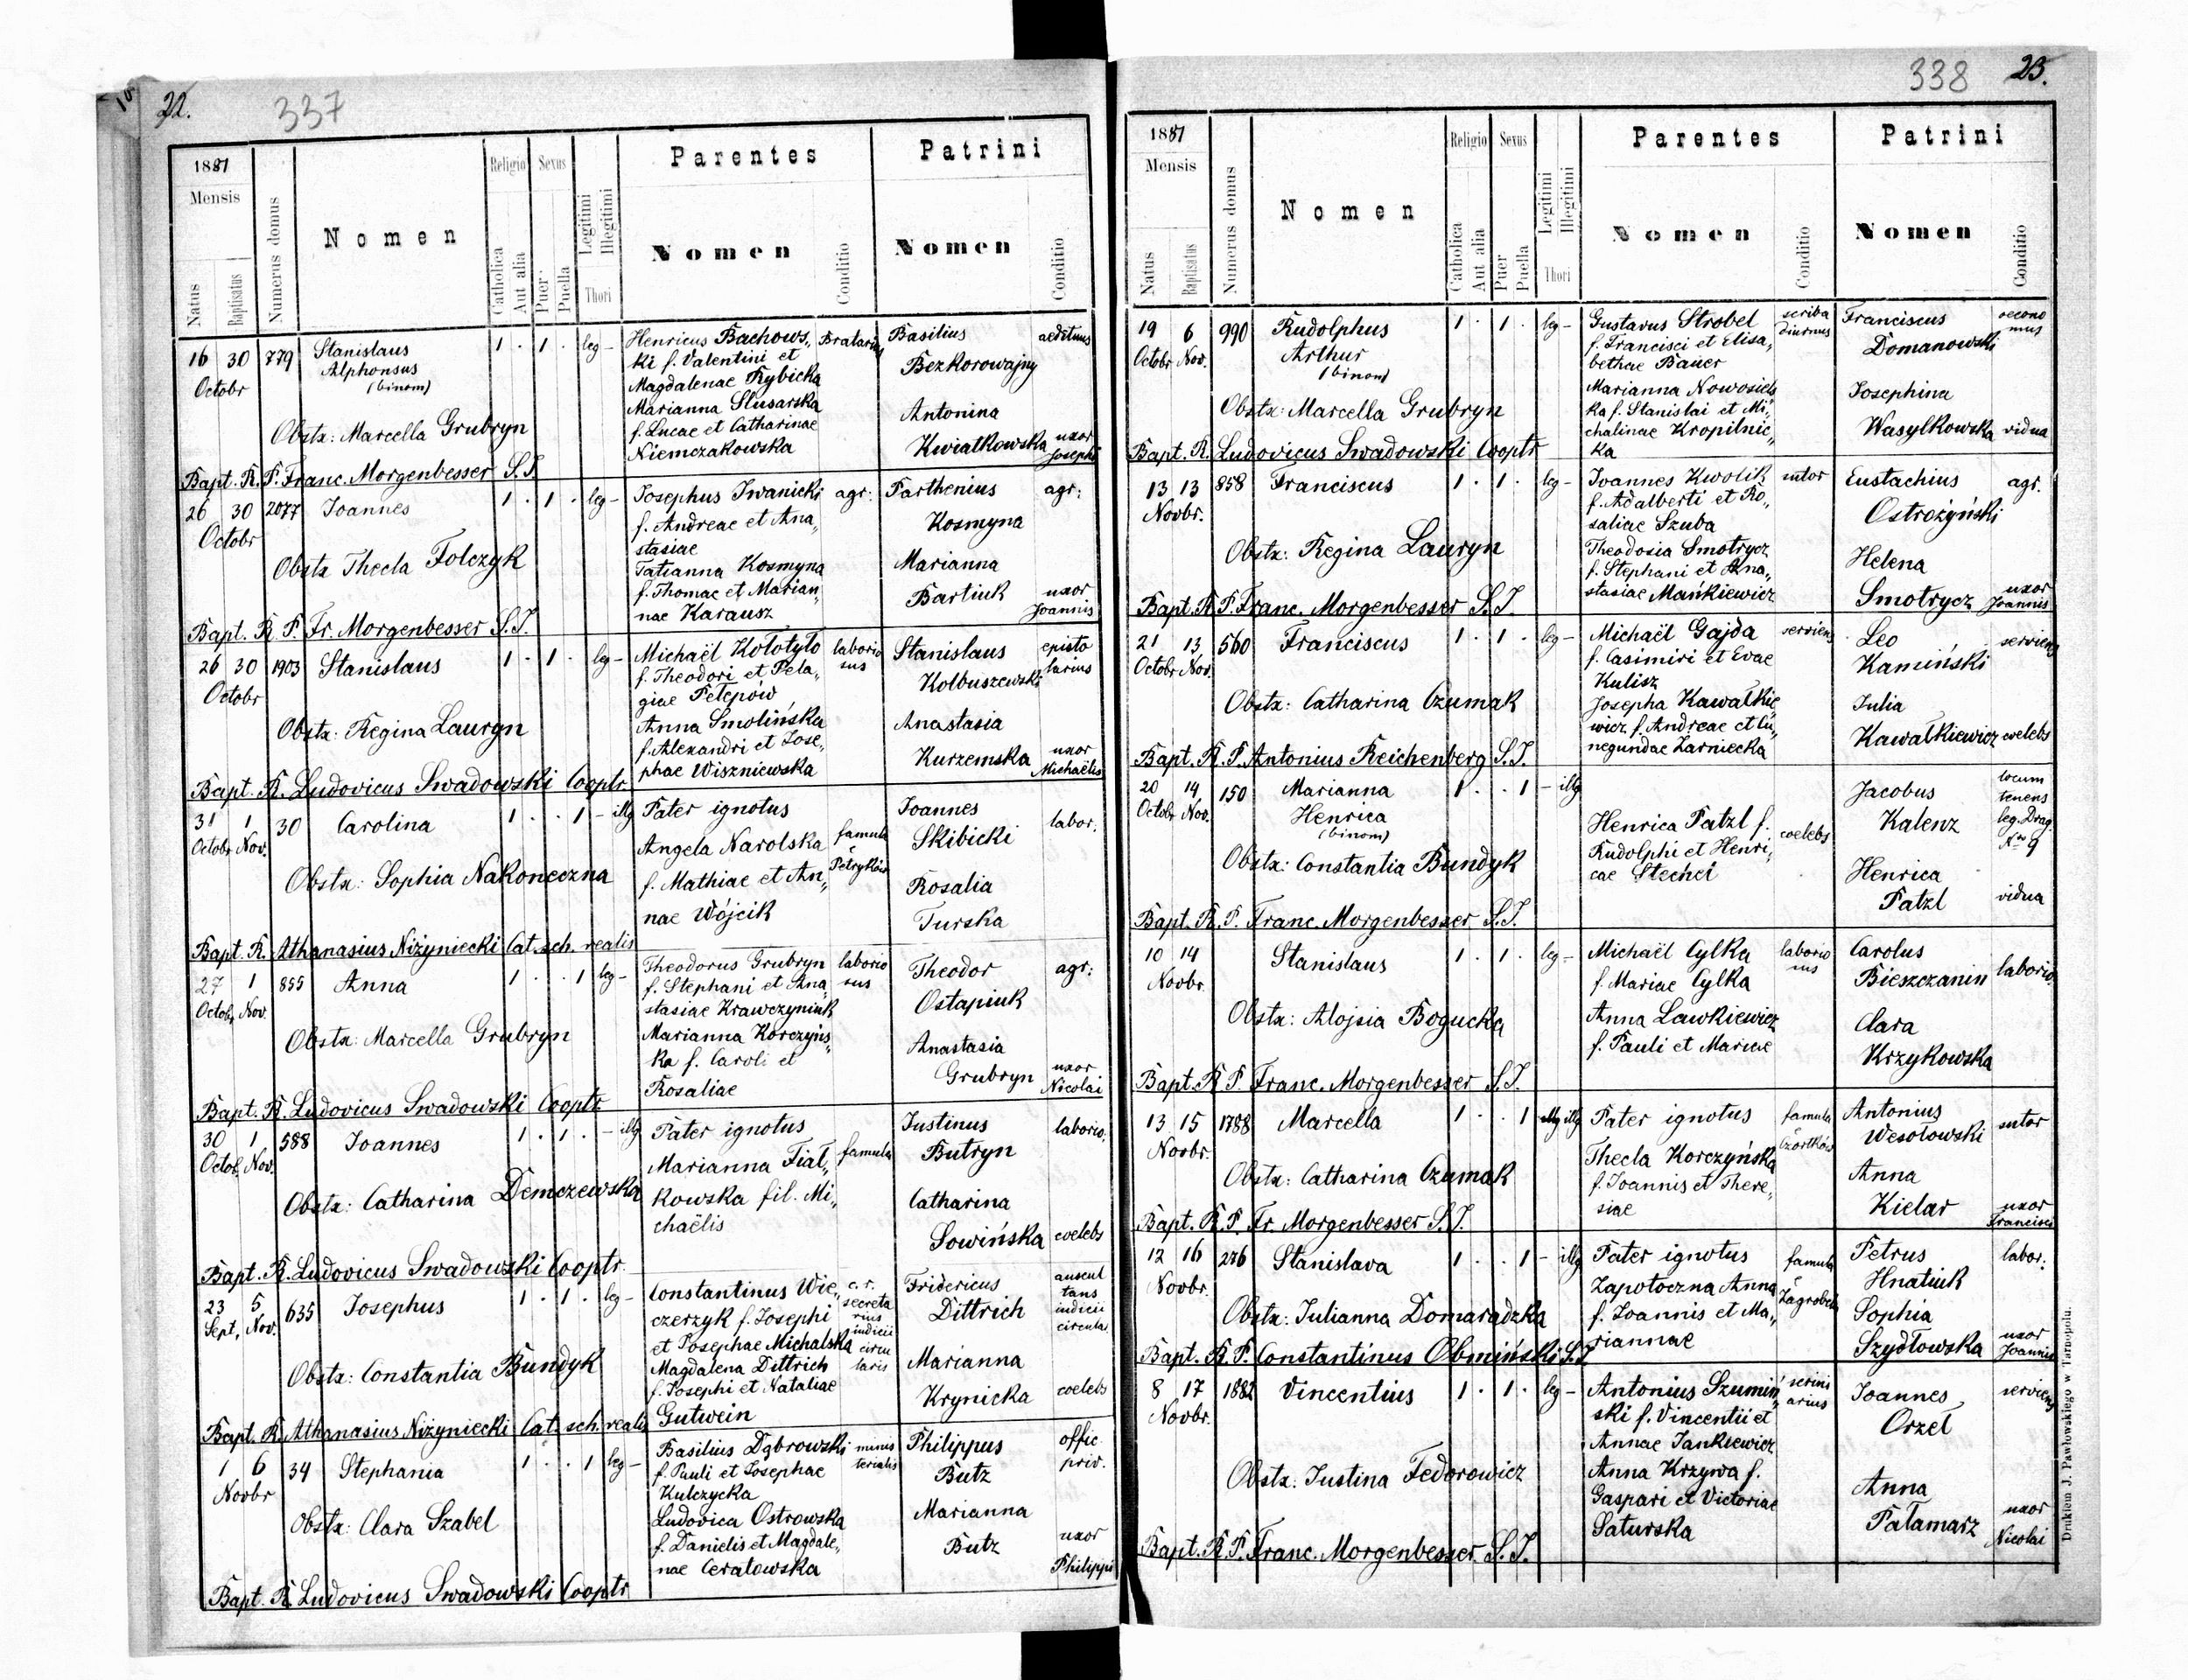 22.
337
1881
Mensis
Natus
Baptisatus
Numerus domus
Nomen
Religio
Catholica
Aut alia
Sexus
Puer
Puella
Legitimi
Illegitimi
Thori
Parentes
Nomen
Conditio
Patrini
Nomen
Conditio
16 30 779 Stanislaus 1 . 1 . leg -
Alphonsus
(binom)
Octobr
Henricus Bachows„
ki f. Valentini et
Magdalenae Rybicka
Marianna Slusarska
f. Lucae et Catharinae
Niemczakowska
Basilius aedituus
Bezkorowajny
Antonina
Kwiatkowska uxor
Josephi
Obstx: Marcella Grubryn
Bapt. R. P. Franc. Morgenbesser S.J.
26 30 2077 Joannes 1 . 1 . leg -
Octobr
Josephus Iwanicki agr:
f. Andreae et Ana„
stasiae
Tatianna Kosmyna
f. Thomae et Marian„
nae Karausz
Parthenius agr:
Kosmyna
Marianna
Bartiuk uxor
Joannis
Obstx Thecla Tolczyk
Bapt. R. P. Fr. Morgenbesser S.J.
26 30 1903 Stanislaus 1 . 1 . leg -
Octobr
Michaël Kołotyło laborio
sus
f. Theodori et Pela„
giae Petepów
Anna Smolińska
f. Alexandri et Jose„
phae Wiszniewska
Stanislaus episto
larius
Kolbuszewski
Anastasia
Kurzemska uxor
Michaëlis
Obstx: Regina Lauryn
Bapt. R. Ludovicus Swadowski Cooptr.
31 1 30 Carolina 1 . . 1 - illg
Octobr Nov.
Pater ignotus
Angela Narolska famula
ź Petryków
f. Mathiae et An„
nae Wójcik
Joannes labor.
Skibicki
Rosalia
Turska
Obstx: Sophia Nakoneczna
Bapt. R. Athanasius Niżyniecki Cat. sch. realis
27 1 855 Anna 1 . . 1 leg -
Octobr Nov.
Theodorus Grubryn laborio
sus
f. Stephani et Ana„
stasiae Krawczyniuk
Marianna Korczyńs„
ka f. Caroli et
Rosaliae
Theodor agr:
Ostapiuk
Anastasia
Grubryn uxor
Nicolai
Obstx: Marcella Grubryn
Bapt. R. Ludovicus Swadowski Cooptr
30 1 588 Joannes 1 . 1 . - illg
Octob. Nov.
Pater ignotus
Marianna Fiał„ famula
kowska fil. Mi„
chaëlis
Justinus laborio.
Butryn
Catharina
Sowińska coelebs
Obstx: Catharina Demczewska
Bapt. R. Ludovicus Swadowski Cooptr.
23 5 635 Josephus 1 . 1 . leg -
Sept. Nov.
Constantinus Wie„ c. r.
secreta
rius
iudicii
circu
laris
czerzyk f. Josephi
et Josephae Michalska
Magdalena Dittrich
f. Josephi et Nataliae
Gutwein
Fridericus auscul
tans
iudicii
circula.
Dittrich
Marianna
Krynicka coelebs
Obstx: Constantia Bundyk
Bapt. R. Athanasius Niżyniecki Cat. sch. realis
1 6 34 Stephania 1 . . 1 leg -
Novbr
Basilius Dąbrowski minis
terialis
f. Pauli et Josephae
Kulczycka
Ludovica Ostrowska
f. Danielis et Magdale„
nae Ceratowska
Philippus offic
priv.
Butz
Marianna
Butz uxor
Philippi
Obstx: Clara Szabel
Bapt. R. Ludovicus Swadowski Cooptr
338
23.
1881
Mensis
Natus
Baptisatus
Numerus domus
Nomen
Religio
Catholica
Aut alia
Sexus
Puer
Puella
Legitimi
Illegitimi
Thori
Parentes
Nomen
Conditio
Patrini
Nomen
Conditio
19 6 990 Rudolphus 1 . 1 . leg -
Octobr Nov. Arthur
(binom)
Gustavus Strobel scriba
diurnus
f. Francisci et Elisa„
bethae Bauer
Marianna Nowosiels
ka f. Stanislai et Mi„
chalinae Kropilnic„
ka
Franciscus oecono
mus
Domanowski
Josephina
Wasylkowska vidua
Obstx: Marcella Grubryn
Bapt. R. Ludovicus Swadowski Cooptr
13 13 858 Franciscus 1 . 1 . leg -
Novbr.
Joannes Kwolik sutor
f. Adalberti et Ro„
saliae Szuba
Theodosia Smotrycz
f. Stephani et Ana„
stasiae Mańkiewicz
Eustachius agr.
Ostrożyński
Helena
Smotrycz uxor
Joannis
Obstx: Regina Lauryn
Bapt. R. P. Franc. Morgenbesser S.J.
21 13 560 Franciscus 1 . 1 . leg -
Octobr Nov.
Michaël Gajda serviens
f. Casimiri et Evae
Kulisz
Josepha Kawałkie„
wicz f. Andreae et Cu„
negundae Żarniecka
Leo serviens
Kamiński
Julia
Kawałkiewicz coelebs
Obstx: Catharina Czumak
Bapt. R. P. Antonius Reichenberg S.J.
20 14 150 Marianna 1 . . 1 - illg
Octobr Nov. Henrica
(binom)
Henrica Patzl f. coelebs
Rudolphi et Henri„
cae Stechel
Jacobus locum
tenens
leg. Drag.
Nro 9
Kalenz
Henrica
Patzl vidua
Obstx: Constantia Bundyk
Bapt. R. P. Franc. Morgenbesser S.J.
10 14 Stanislaus 1 . 1 . leg -
Novbr
Michaël Cylka laborio
sus
f. Mariae Cylka
Anna Lawkiewicz
f. Pauli et Mariae
Carolus
Bieszczanin laborio.
Clara
Krzykowska
Obstx: Alojsia Bogucka
Bapt. R. P. Franc. Morgenbesser S.J.
13 15 1788 Marcella 1 . . 1 illg illg
Novbr.
Pater ignotus famula
ź Czortków
Thecla Korczyńska
f. Joannis et There„
siae
Antonius sutor
Wesołowski
Anna
Kielar uxor
Francisci
Obstx: Catharina Czumak
Bapt. R. P. Fr. Morgenbesser S.J.
12 16 276 Stanislava 1 . . 1 - illg
Novbr.
Pater ignotus famula
ź Zagrobela
Zapotoczna Anna
f. Joannis et Ma„
riannae
Petrus labor:
Hnatiuk
Sophia
Szydłowska uxor
Joannis
Obstx: Julianna Domaradzka
Bapt. R. P. Constantinus Obmiński S.J.
8 17 1882 Vincentius 1 . 1 . leg -
Novbr.
Antonius Szumiń„ scrini
arius
ski f. Vincentii et
Annae Jankiewicz
Anna Krzywa f.
Gaspari et Victoriae
Saturska
Joannes serviens
Orzeł
Anna
Pałamarz uxor
Nicolai
Obstx: Justina Fedorowicz
Bapt. R. P. Franc. Morgenbesser S.J.
Drukiem J. Pawłowskiego w Tarnopolu.